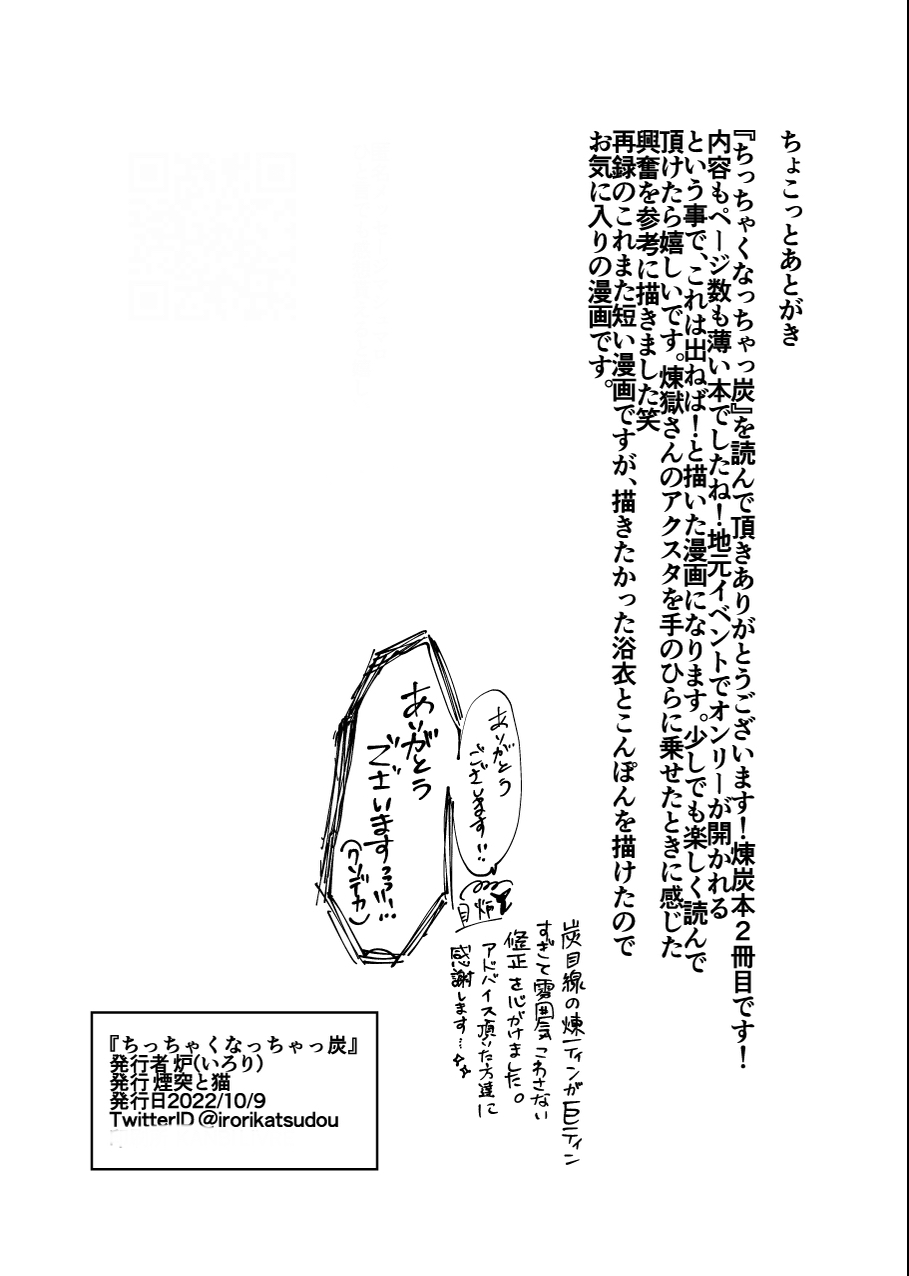 ちょこっとあとがき
『ちっちゃくなっちゃっ炭』を読んで頂きありがとうございます！煉炭本２冊目です！
内容もページ数も薄い本でしたね！地元イベントでオンリーが開かれる
という事で、これは出ねば！と描いた漫画になります。少しでも楽しく読んで
頂けたら嬉しいです。煉獄さんのアクスタを手のひらに乗せたときに感じた
興奮を参考に描きました笑
再録のこれまた短い漫画ですが、描きたかった浴衣とこんぽんを描けたので
お気に入りの漫画です。
ありがとう
ございます!!
ありがとう
ございますっっ!!…
(クソデカ)
炉
炭目線の煉ティンが巨ティン
すぎて雰囲気こわさない
修正を心がけました。
アドバイス頂いた方達に
感謝します…
『ちっちゃくなっちゃっ炭』
発行者 炉(いろり)
発行 煙突と猫
発行日2022/10/9
TwitterID @irorikatsudou